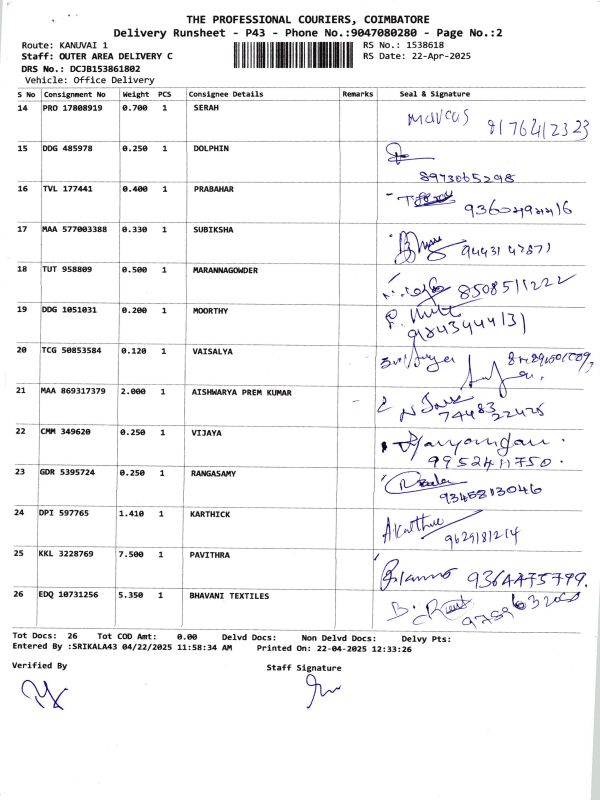 THE PROFESSIONAL COURIERS, COIMBATORE
Delivery Runsheet - P43 - Phone No.:9047080280 - Page No.:2
Route: KANUVAI 1 RS No.: 1538618
Staff: OUTER AREA DELIVERY C RS Date: 22-Apr-2025
DRS No.: DCJB153861802
Vehicle: Office Delivery
S No Consignment No Weight PCS Consignee Details Remarks Seal & Signature
14 PRO 17808919 0.700 1 SERAH
Marcus 8176412323
15 DDG 485978 0.250 1 DOLPHIN
8973065298
16 TVL 177441 0.400 1 PRABAHAR
17 MAA 577003388 0.330 1 SUBIKSHA
9443147871
18 TUT 958809 0.500 1 MARANNAGOWDER
8508511222
19 DDG 1051031 0.200 1 MOORTHY
20 TCG 50853584 0.120 1 VAISALYA
21 MAA 869317379 2.000 1 AISHWARYA PREM KUMAR
22 CMM 349620 0.250 1 VIJAYA
9952411750.
23 GDR 5395724 0.250 1 RANGASAMY
9345813046
24 DPI 597765 1.410 1 KARTHICK
9629181214
25 KKL 3228769 7.500 1 PAVITHRA
9364475799.
26 EDQ 10731256 5.350 1 BHAVANI TEXTILES
Tot Docs: 26 Tot COD Amt: 0.00 Delvd Docs: Non Delvd Docs: Delvy Pts:
Entered By :SRIKALA43 04/22/2025 11:58:34 AM Printed On: 22-04-2025 12:33:26
Verified By Staff Signature